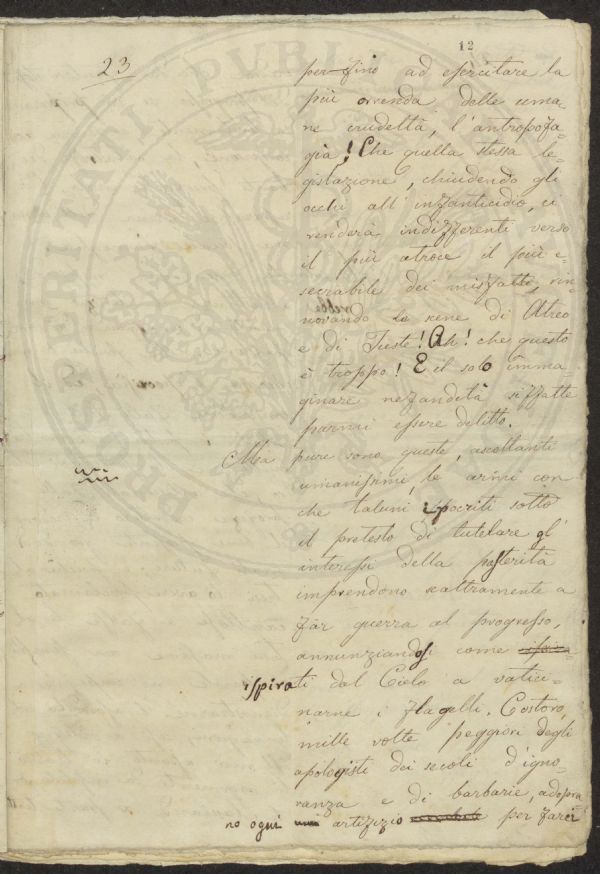 12
23
per fino ad esercitare la
più orrenda delle uma=
ne crudeltà, l'antropofa=
gia! Che quella stessa le=
gislazione, chiudendo gli
occhi all'infanticidio, ci
renderà indifferenti verso
il più atroce il più e=
secrabile dei misfatti, rin=
novando le scene di Atreo
e di Tieste! Ah! che questo
è troppo! E il solo imma
ginare nefandità siffatte
parmi essere delitto.
Ma pure sono queste, ascoltanti
umanissimi, le armi con
che taluni ipocriti sotto
il pretesto di tutelare gl'
interessi della posterità
imprendono scaltramente a
far guerra al progresso,
annunziandosi come
ispirati dal Cielo a vatici=
narne i flagelli. Costoro,
mille volte peggiori degli
apologisti dei secoli d'igno=
ranza e di barbarie, adopra
no ogni artifizio per farci